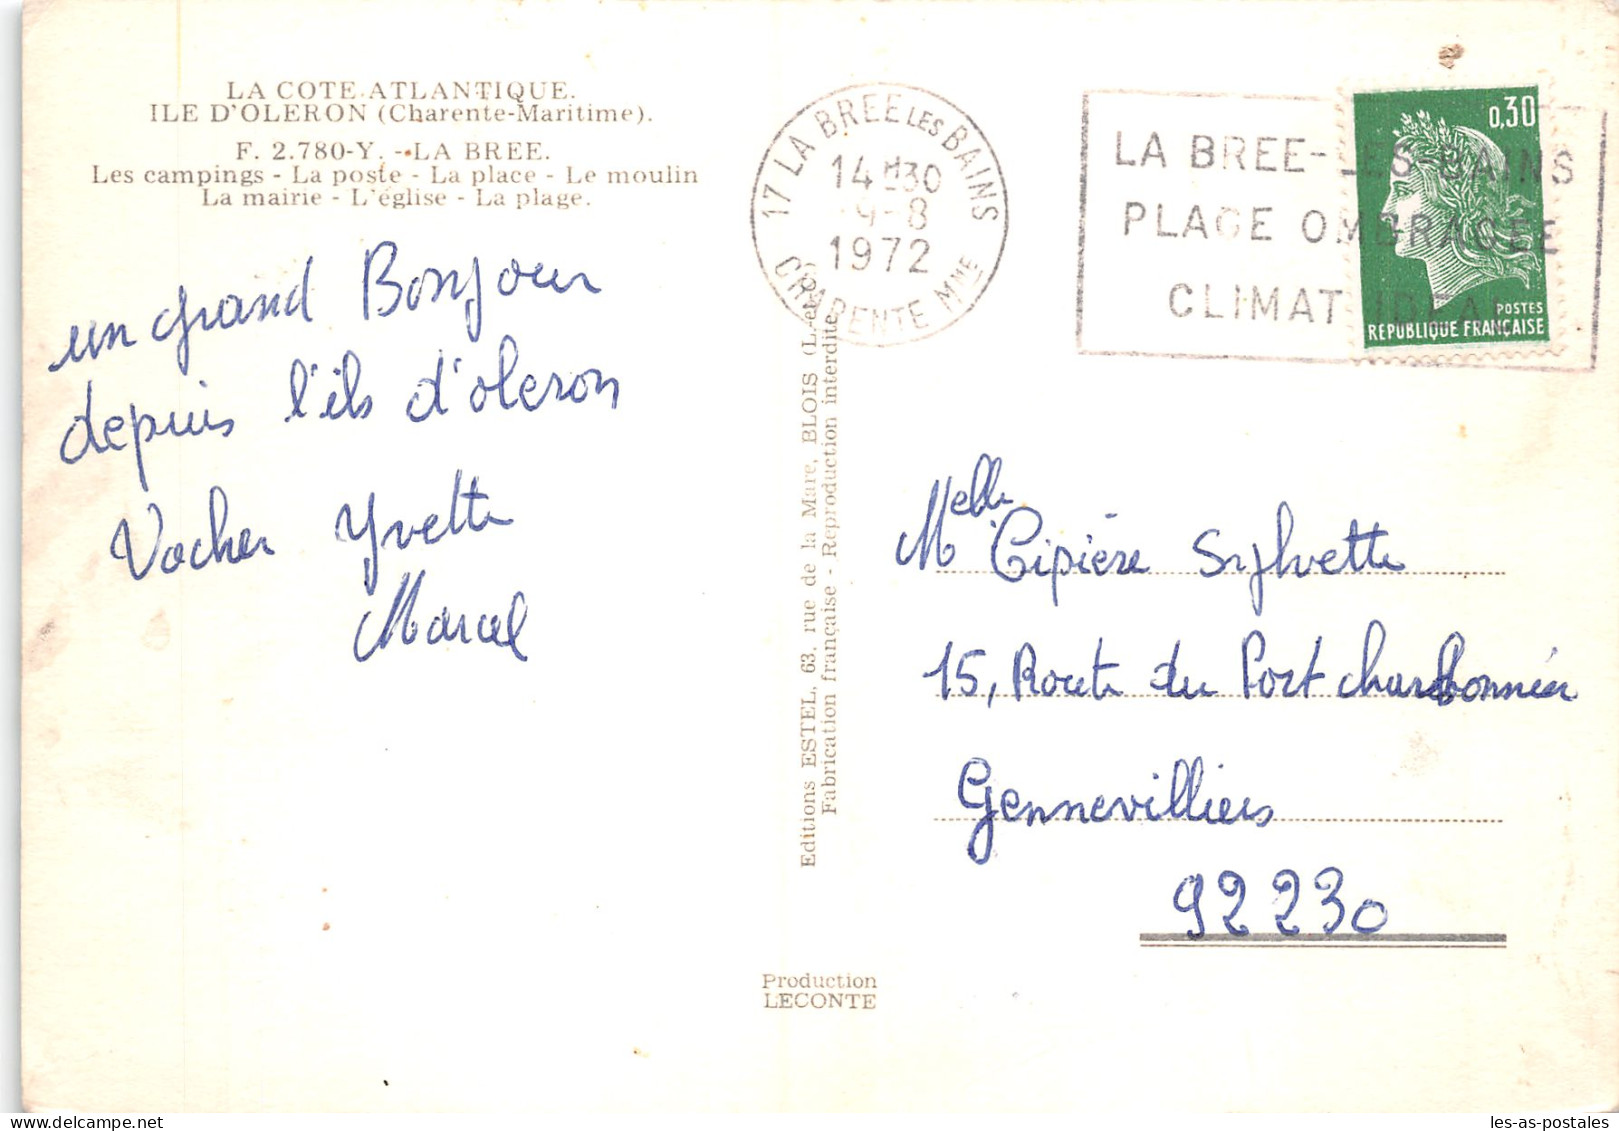 LA COTE ATLANTIQUE.
ILE D'OLERON (Charente-Maritime).
F. 2.780-Y. - LA BREE.
Les campings - La poste - La place - Le moulin
La mairie - L'église - La plage.
un grand Bonjour
depuis l'ils d'oleron
Vacher Yvette
Marcel
Editions ESTEL, 63, rue de la Mare, BLOIS (L.-et-
Fabrication française - Reproduction interdite
Production
LECONTE
17 LA BREE LES BAINS
14H30
9-8
1972
CHARENTE MME
LA BREE-LES-BAINS
PLAGE OMBRAGEE
CLIMAT IDEAL
0,30
POSTES
REPUBLIQUE FRANÇAISE
Melle Cipière Sylvette
15, Route du Port charbonnier
Gennevilliers
92230
les-as-postales